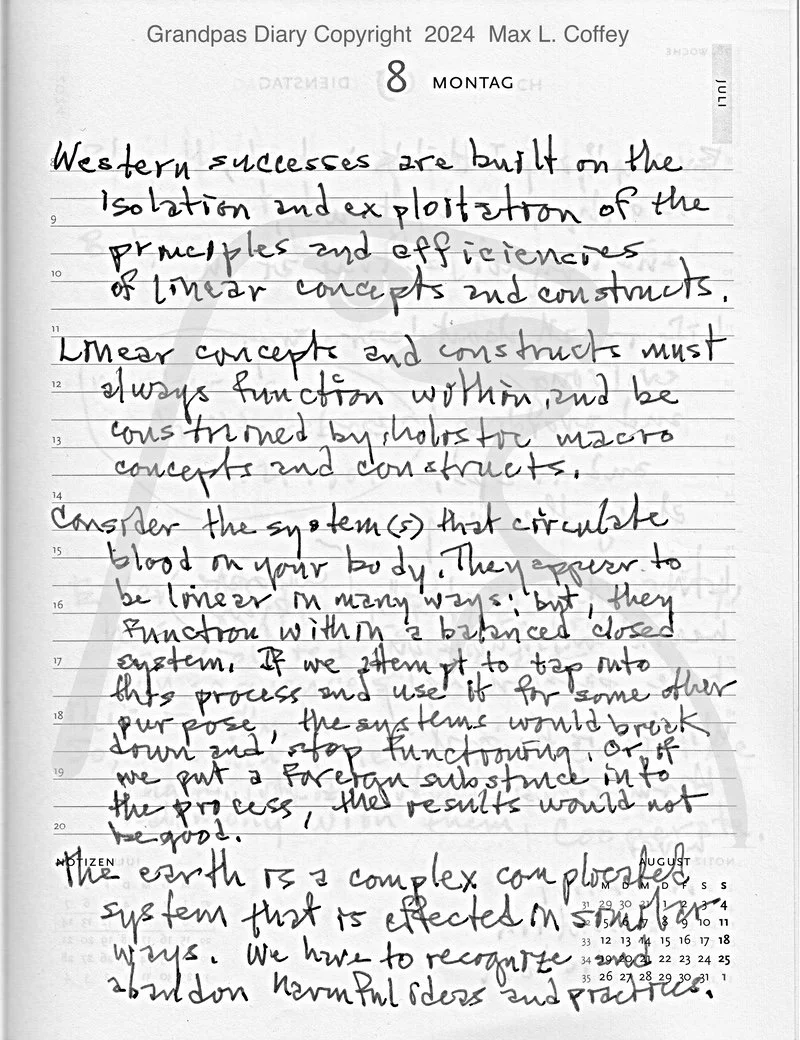 Grandpas Diary Copyright 2024 Max L. Coffey
8 MONTAG
JULI
Western successes are built on the
isolation and exploitation of the
9
principles and efficiencies
10
of linear concepts and constructs.
11
Linear concepts and constructs must
12
always function within, and be
13
constrained by, holistic macro
concepts and constructs.
14
Consider the system(s) that circulate
15
blood on your body. They appear to
be linear in many ways; but, they
16
function within a balanced closed
17
system. If we attempt to tap into
this process and use it for some other
18
purpose, the systems would break
down and stop functioning. Or, if
19
we put a foreign substance into
the process, the results would not
20
be good.
NOTIZEN
AUGUST
The earth is a complex complicated
M D M D F S S
31 29 30 31 1 2 3 4
system that is effected in similar
32 5 6 7 8 9 10 11
33 12 13 14 15 16 17 18
ways. We have to recognize and
34 19 20 21 22 23 24 25
35 26 27 28 29 30 31 1
abandon harmful ideas and practices.